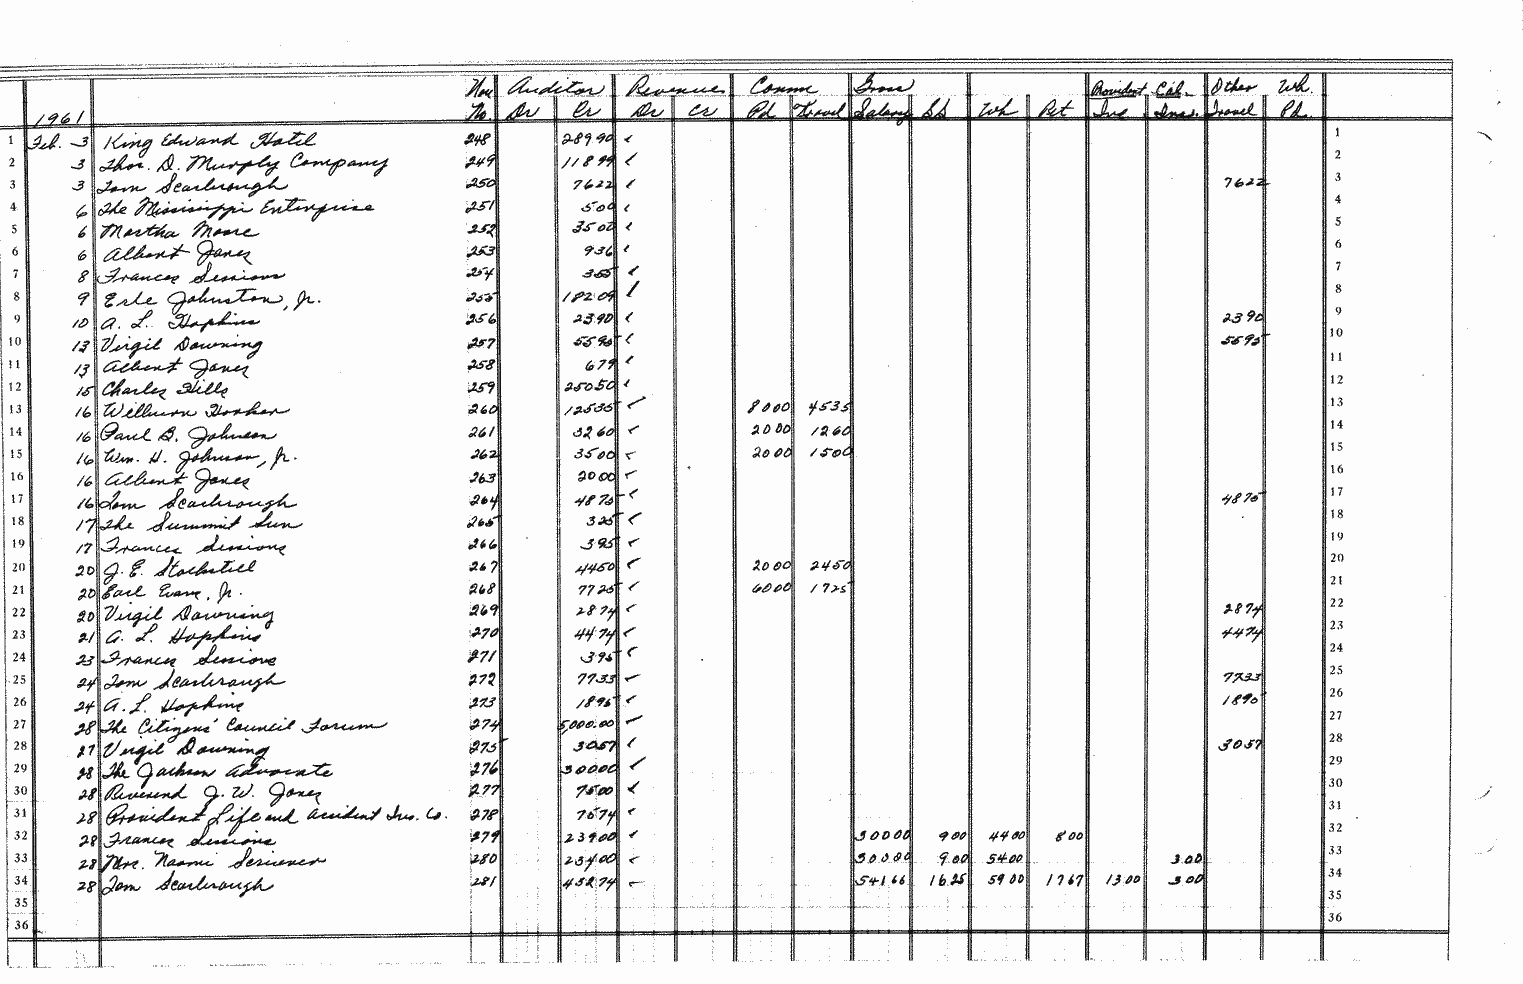 Nov. Auditor Revenues Comm Gross Provident Cal. Other Wh.
1961 No. Dr Cr Dr Cr Pd Travel Salary SS Wh Ret Ins Inss. Travel Pd.
1 Feb. 3 King Edward Hotel 248 289 90 ✓ 1
2 3 Thos. D. Murphy Company 249 118 99 ✓ 2
3 3 Tom Scarbrough 250 76 22 ✓ 76 22 3
4 6 The Mississippi Enterprise 251 5 00 ✓ 4
5 6 Martha Moore 252 35 00 ✓ 5
6 6 Albert Jones 253 9 36 ✓ 6
7 8 Frances Sessions 254 3 55 ✓ 7
8 9 Erle Johnston, Jr. 255 182 09 ✓ 8
9 10 A. L. Hopkins 256 23 90 ✓ 23 90 9
10 13 Virgil Downing 257 55 95 ✓ 55 95 10
11 13 Albert Jones 258 6 79 ✓ 11
12 15 Charles Hills 259 250 50 ✓ 12
13 16 Wilburn Hooker 260 125 35 ✓ 80 00 45 35 13
14 16 Paul B. Johnson 261 32 60 ✓ 20 00 12 60 14
15 16 Wm. H. Johnson, Jr. 262 35 00 ✓ 20 00 15 00 15
16 16 Albert Jones 263 20 00 ✓ 16
17 16 Tom Scarbrough 264 48 75 ✓ 48 75 17
18 17 The Summit Sun 265 3 25 ✓ 18
19 17 Frances Sessions 266 3 95 ✓ 19
20 20 J. E. Stockstill 267 44 50 ✓ 20 00 24 50 20
21 20 Earl Evans, Jr. 268 77 25 ✓ 60 00 17 25 21
22 20 Virgil Downing 269 28 74 ✓ 28 74 22
23 21 A. L. Hopkins 270 44 74 ✓ 44 74 23
24 23 Frances Sessions 271 3 95 ✓ 24
25 24 Tom Scarbrough 272 77 33 ✓ 77 33 25
26 24 A. L. Hopkins 273 18 95 ✓ 18 95 26
27 28 The Citizens' Council Forum 274 5,000.00 ✓ 27
28 27 Virgil Downing 275 30 57 ✓ 30 57 28
29 28 The Jackson Advocate 276 300 00 ✓ 29
30 28 Reverend J. W. Jones 277 75 00 ✓ 30
31 28 Provident Life and Accident Ins. Co. 278 75 74 ✓ 31
32 28 Frances Sessions 279 239 00 ✓ 300 00 9 00 44 00 8 00 32
33 28 Mrs. Naomi Scrivener 280 234 00 ✓ 300 00 9.00 54 00 3 00 33
34 28 Tom Scarbrough 281 432 74 ✓ 541 66 16 25 59 00 17 67 13 00 3 00 34
35 35
36 36